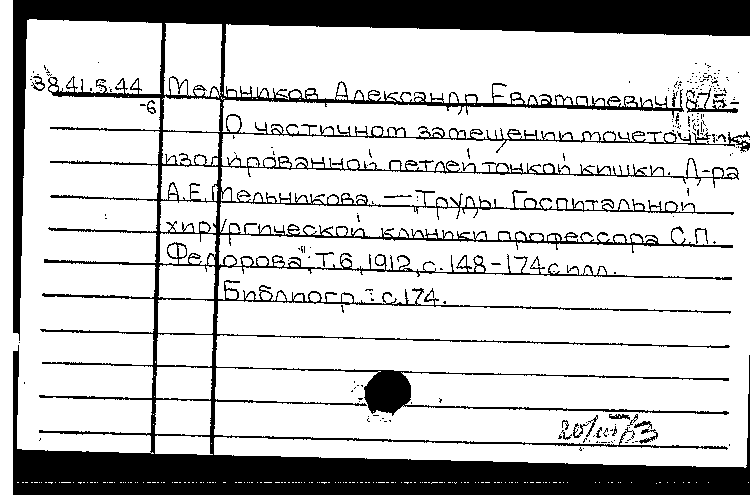 38.41.5.44 Мельников, Александр Евлампиевич, 1875-
-6 О частичном замещении мочеточника
изолированной петлей тонкой кишки. Д-ра
А.Е.Мельникова. — "Труды Госпитальной
хирургической клиники профессора С.П.
Федорова", т.6, 1912, с. 148-174 с илл.
Библиогр.: с.174.